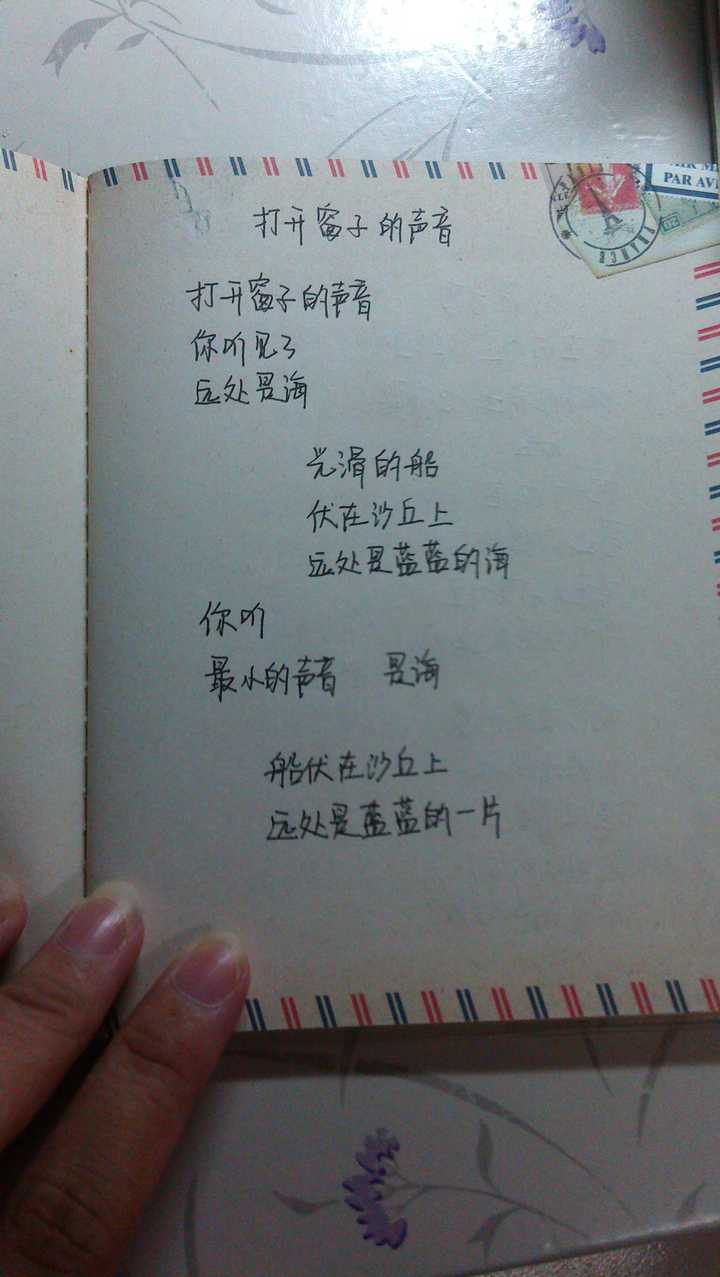 PAR AV
FRANCE
打开窗子的声音
打开窗子的声音
你听见了
远处是海
光滑的船
伏在沙丘上
远处是蓝蓝的海
你听
最小的声音 是海
船伏在沙丘上
远处是蓝蓝的一片